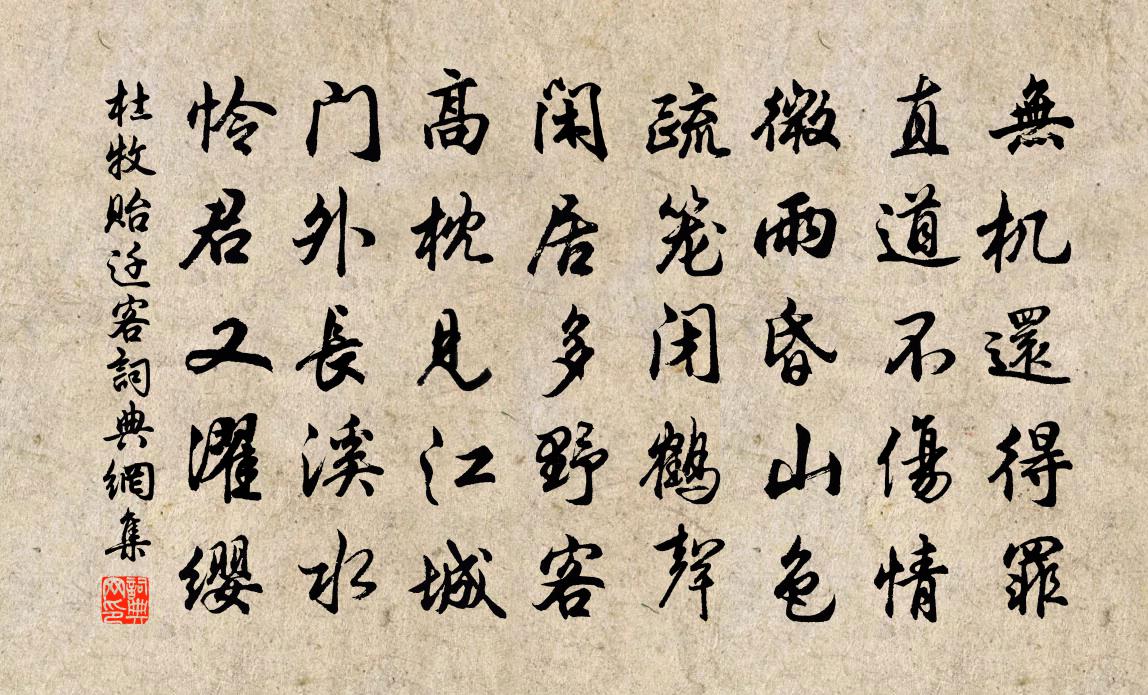 無机還得罪
直道不傷情
微雨昏山色
疏笼闭鶴聲
闲居多野客
高枕見江城
门外長溪水
怜君又濯缨
杜牧貽迁客詞典網集
詞典网印